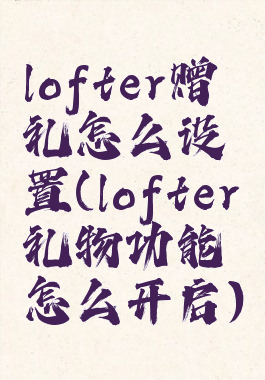 lofter赠
礼怎么设
置(lofter
礼物功能
怎么开启)